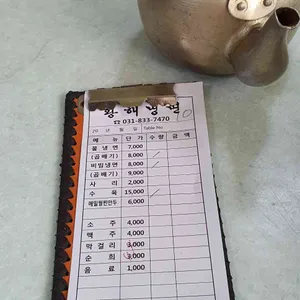 황해냉면
☎ 031-833-7470
20 년 월 일 Table No.
메뉴 단가 수량 금액
물냉면 7,000
(곱빼기) 8,000
비빔냉면 8,000
(곱빼기) 9,000
사리 2,000
수육 15,000
메밀찐만두 6,000
소주 4,000
맥주 4,000
막걸리 3,000
순희 3,000
음료 1,000